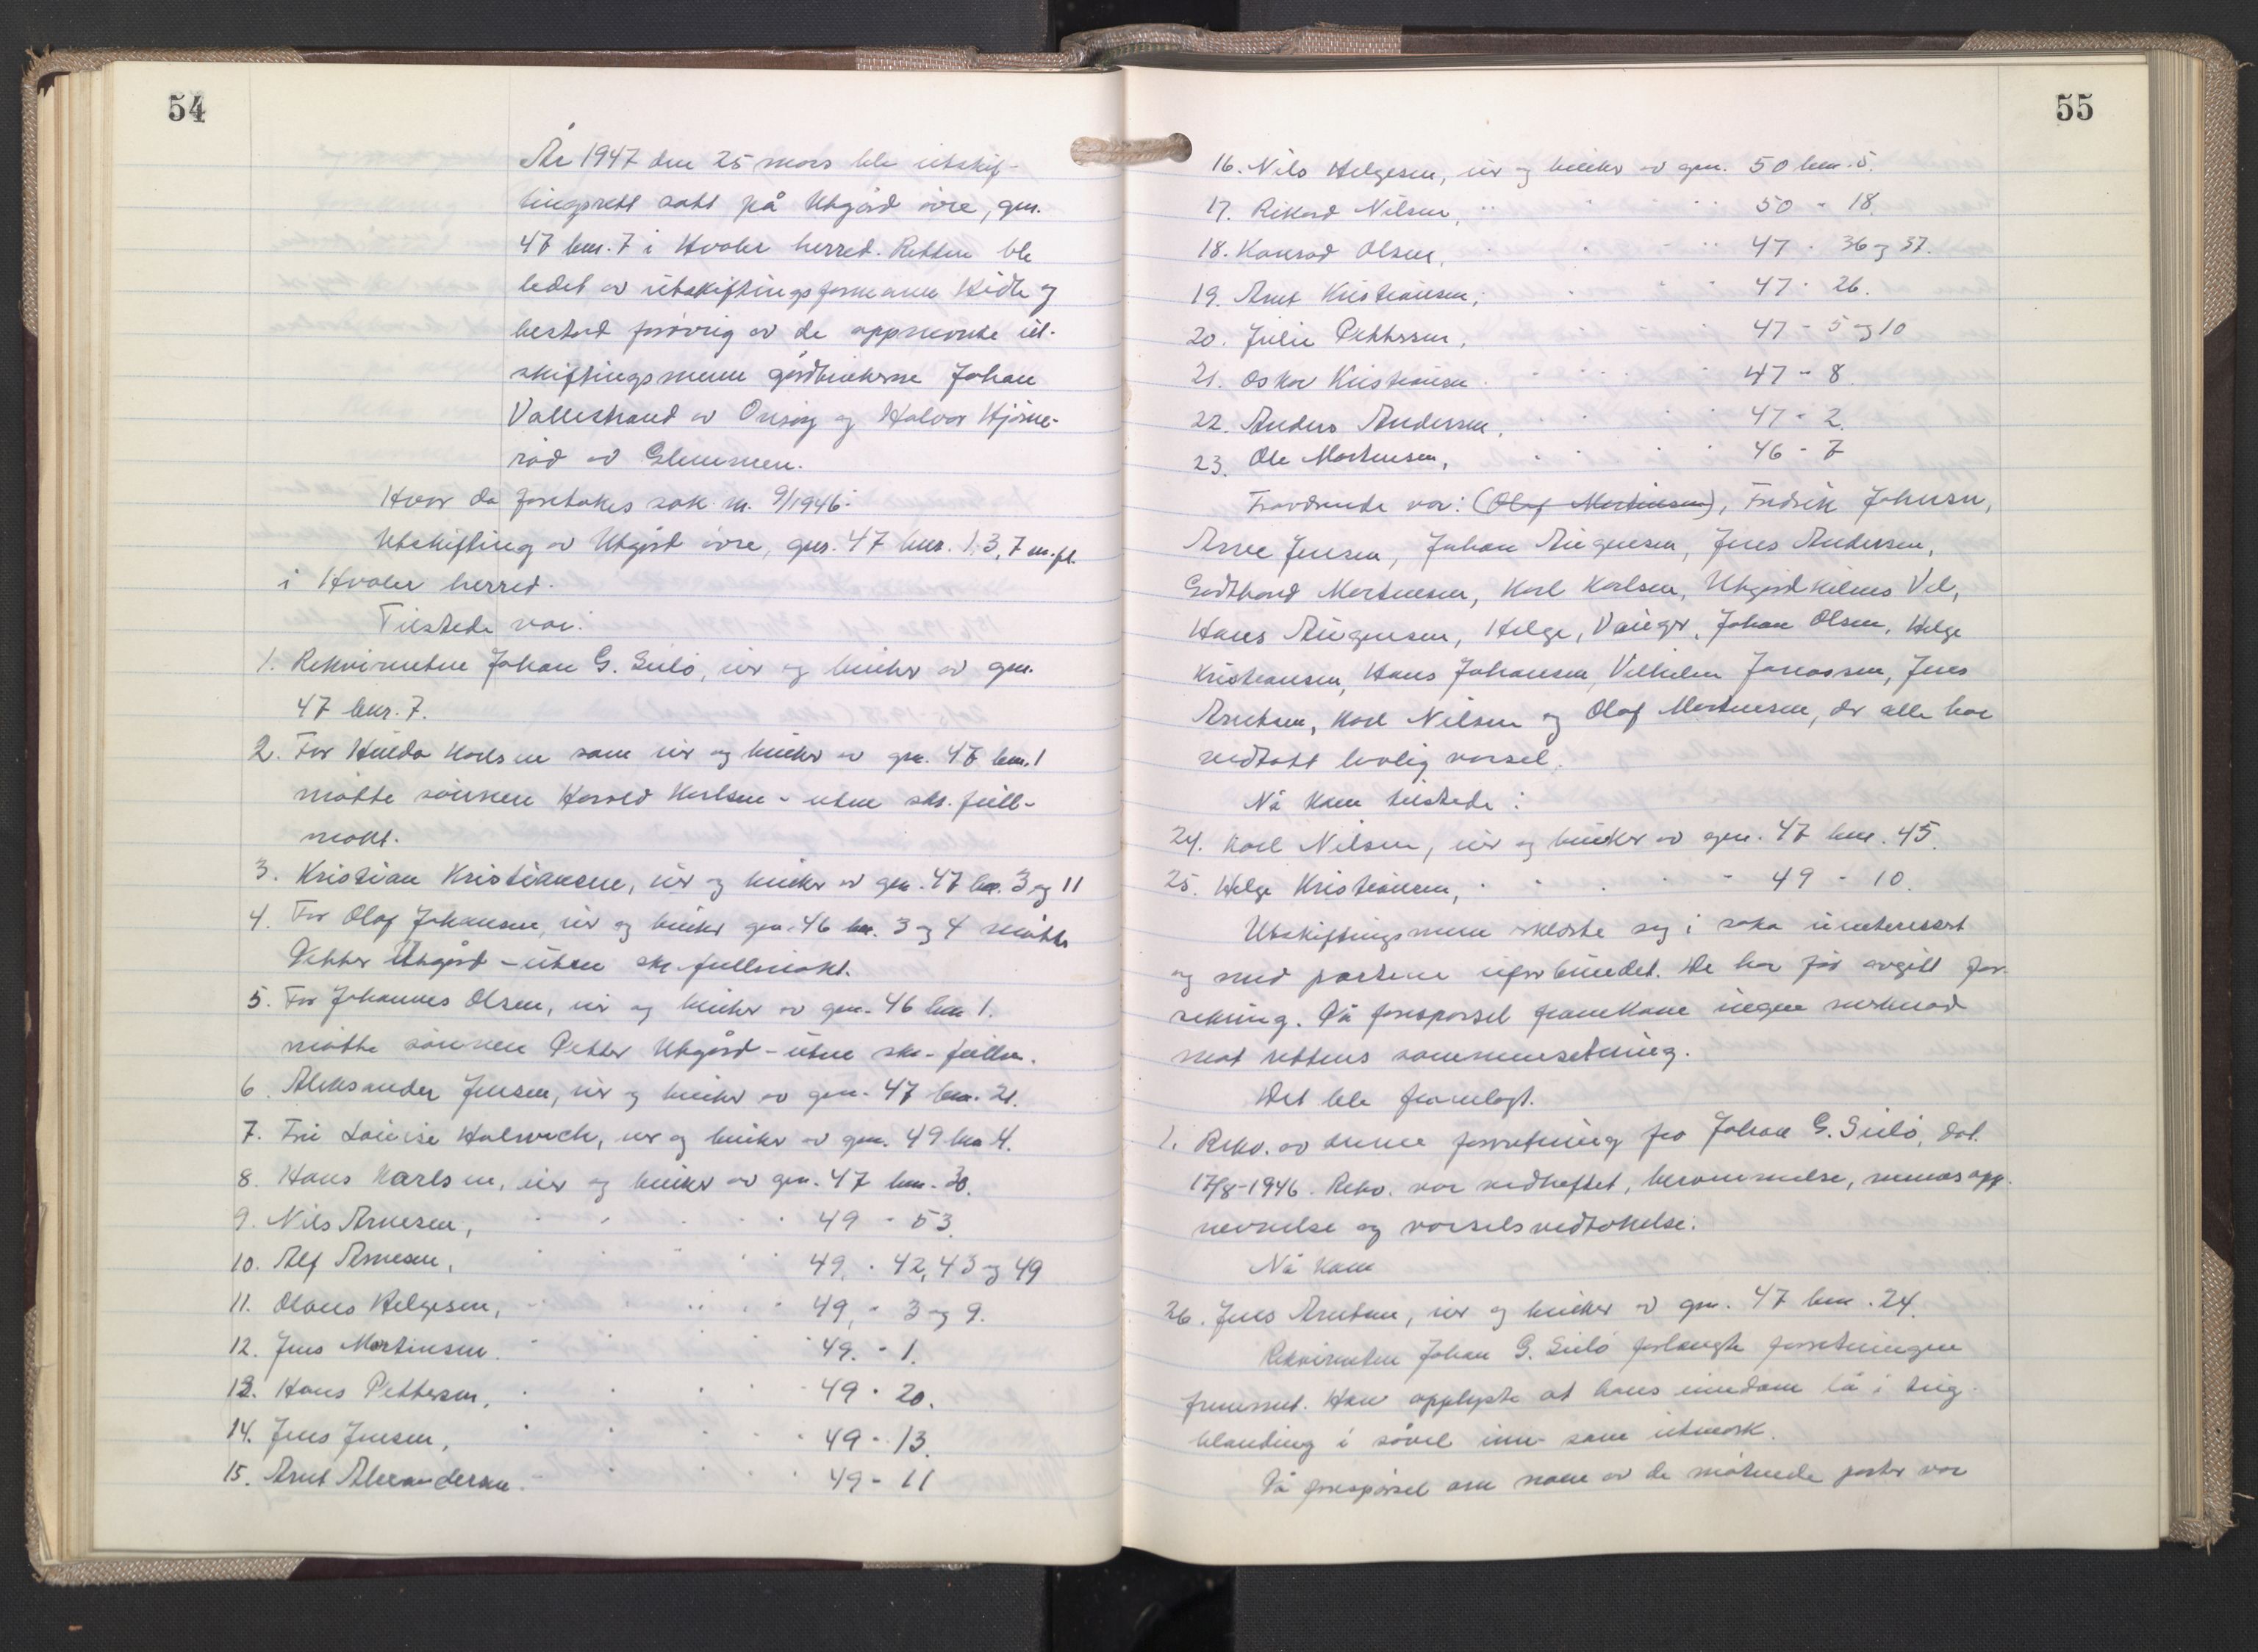 54
År 1947 den 25 mars ble utskif-
tingsrett satt på Utgård øvre, gnr.
47 bnr. 7 i Hvaler herred. Retten ble
ledet av utskiftingsformann Hidle og
bestod forøvrig av de oppnevnte ut-
skiftingsmenn gårdbrukerne Johan
Vallestrand av Onsøy og Halvor Hjørne-
rød av Glemmen.
Hvor da foretokes sak nr. 9/1946:
Utskifting av Utgård øvre, gnr. 47 bnr. 1, 3, 7 m.fl.
i Hvaler herred.
Tilstede var:
1. Rekvirenten Johan G. Seilø, eier og bruker av gnr.
47 bnr. 7.
2. For Hulda Karlsen som eier og bruker av gnr. 47 bnr. 1
møtte sønnen Harald Karlsen - uten skr. full-
makt.
3. Kristian Kristiansen, eier og bruker av gnr. 47 bnr. 3 og 11
4. For Olaf Johansen, eier og bruker gnr. 46 bnr. 3 og 4 møtte
Petter Utgård - uten skr. fullmakt.
5. For Johannes Olsen, eier og bruker av gnr. 46 bnr 1.
møtte sønnen Petter Utgård - uten skr. fullm.
6. Aleksander Jensen, eier og bruker av gnr. 47 bnr. 21.
7. Fru Louise Halvorsen, eier og bruker av gnr. 49 bnr 4.
8. Hans Karlsen, eier og bruker av gnr. 47 bnr. 30.
9. Nils Arnesen, " " " " 49 " 53.
10. Alf Arnesen, " " " " 49. " 42, 43 og 49
11. Olaus Helgesen, " " " " 49, " 3 og 9.
12. Jens Martinsen. " " " " 49. " 1.
13. Hans Pettersen, " " " " 49 " 20.
14. Jens Jensen, " " " " 49 " 13.
15. Arnt Alexandersen. " " " " 49 - 11
55
16. Nils Helgesen, eier og bruker av gnr. 50 bnr. 5.
17. Rikard Nilsen, " " " " 50 " 18.
18. Konrad Olsen, " " " " 47 " 36 og 37.
19. Arnt Kristiansen, " " " " 47 " 26.
20. Julie Pettersen, " " " " 47 - 5 og 10
21. Oskar Kristiansen. " " " " 47 - 8.
22. Anders Andersen, " " " " 47 - 2.
23. Ole Martinsen, " " " " 46 - 7
Fraværende var: (Olaf Martinsen), Fredrik Johnsen,
Arne Jensen, Johan Augensen, Jens Andersen,
Godthard Mortensen, Karl Karlsen, Utgårdkilens Vel,
Hans Augensen, Helge, Vauger, Johan Olsen, Helge
Kristiansen, Hans Johansen, Vilhelm Jonassen, Jens
Arntsen, Karl Nilsen og Olaf Martinsen, der alle har
vedtatt lovlig varsel.
Nå kom tilstede:
24. Karl Nilsen, eier og bruker av gnr. 47 bnr. 45.
25. Helge Kristiansen, " " " " 49 - 10.
Utskiftingsmenn erklærte seg i saka uinteressert
og med partene uforbundet. De har før avgitt for-
sikring. På forespørsel framkom ingen merknad
mot rettens sammensetning.
Det ble framlagt.
1. Rekv. av denne forretning fra Johan G. Seilø, dat.
17/8-1946. Rekv. var vedheftet, berammelse, mennsopp-
nevnelse og varselsvedtakelse.
Nå kom
26. Jens Arntsen, eier og bruker av gnr. 47 bnr. 24.
Rekvirenten Johan G. Seilø forlangte forretningen
fremmet. Han opplyste at hans eiendom lå i teig-
blanding i såvel inn- som utmark.
På forespørsel om noen av de møtende parter var